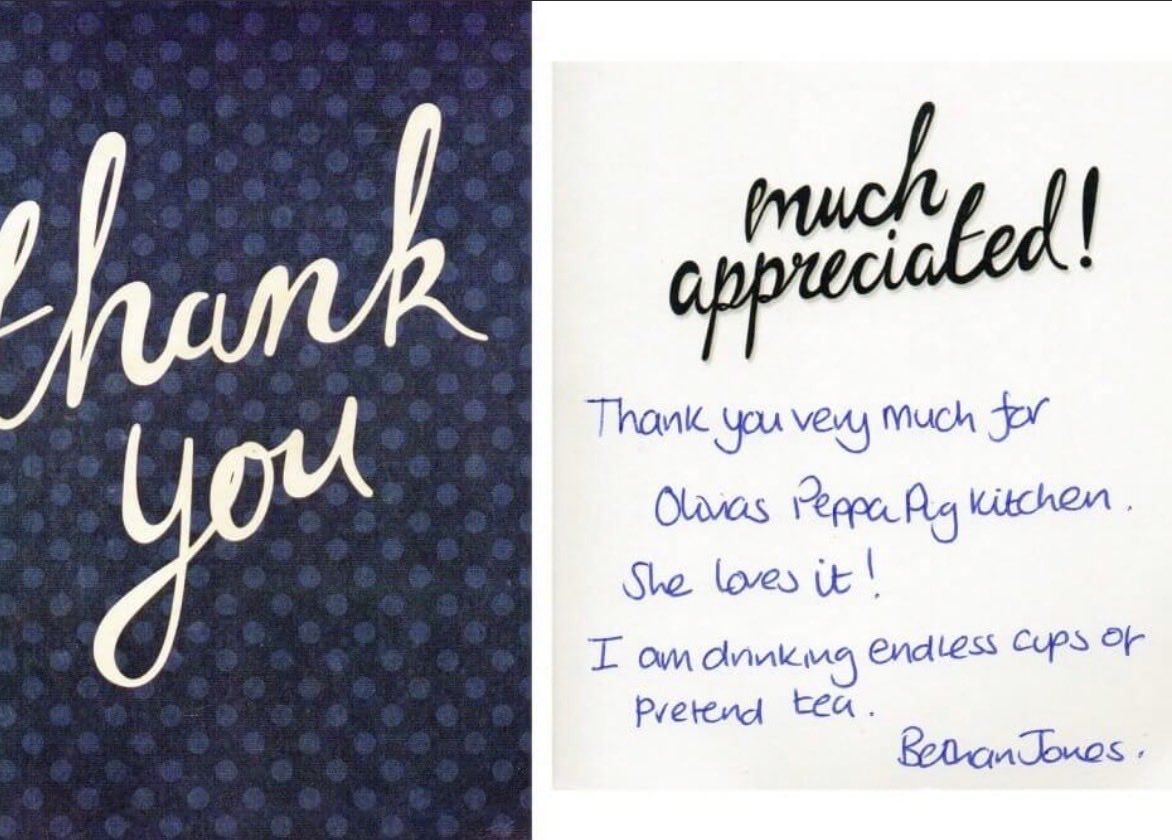 thank
you
much
appreciated!
Thank you very much for
Olivias Peppa Pig Kitchen.
She loves it!
I am drinking endless cups of
pretend tea.
Bethan Jones.